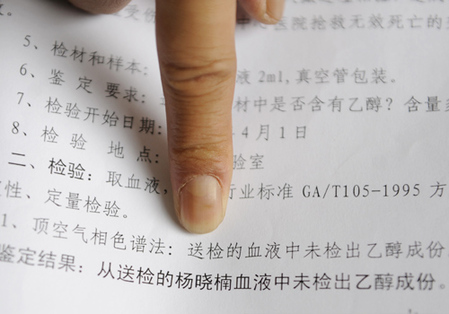 医院抢救无效死亡的
5、检材和样本: 液 2ml,真空管包装。
6、鉴定要求: 材中是否含有乙醇?含量
7、检验开始日期 年 4 月 1 日
8、检 验 地 点: 验室
二、检验:取血液, 行业标准 GA/T105-1995 方
性、定量检验。
1、顶空气相色谱法:送检的血液中未检出乙醇成份
鉴定结果:从送检的杨晓楠血液中未检出乙醇成份。